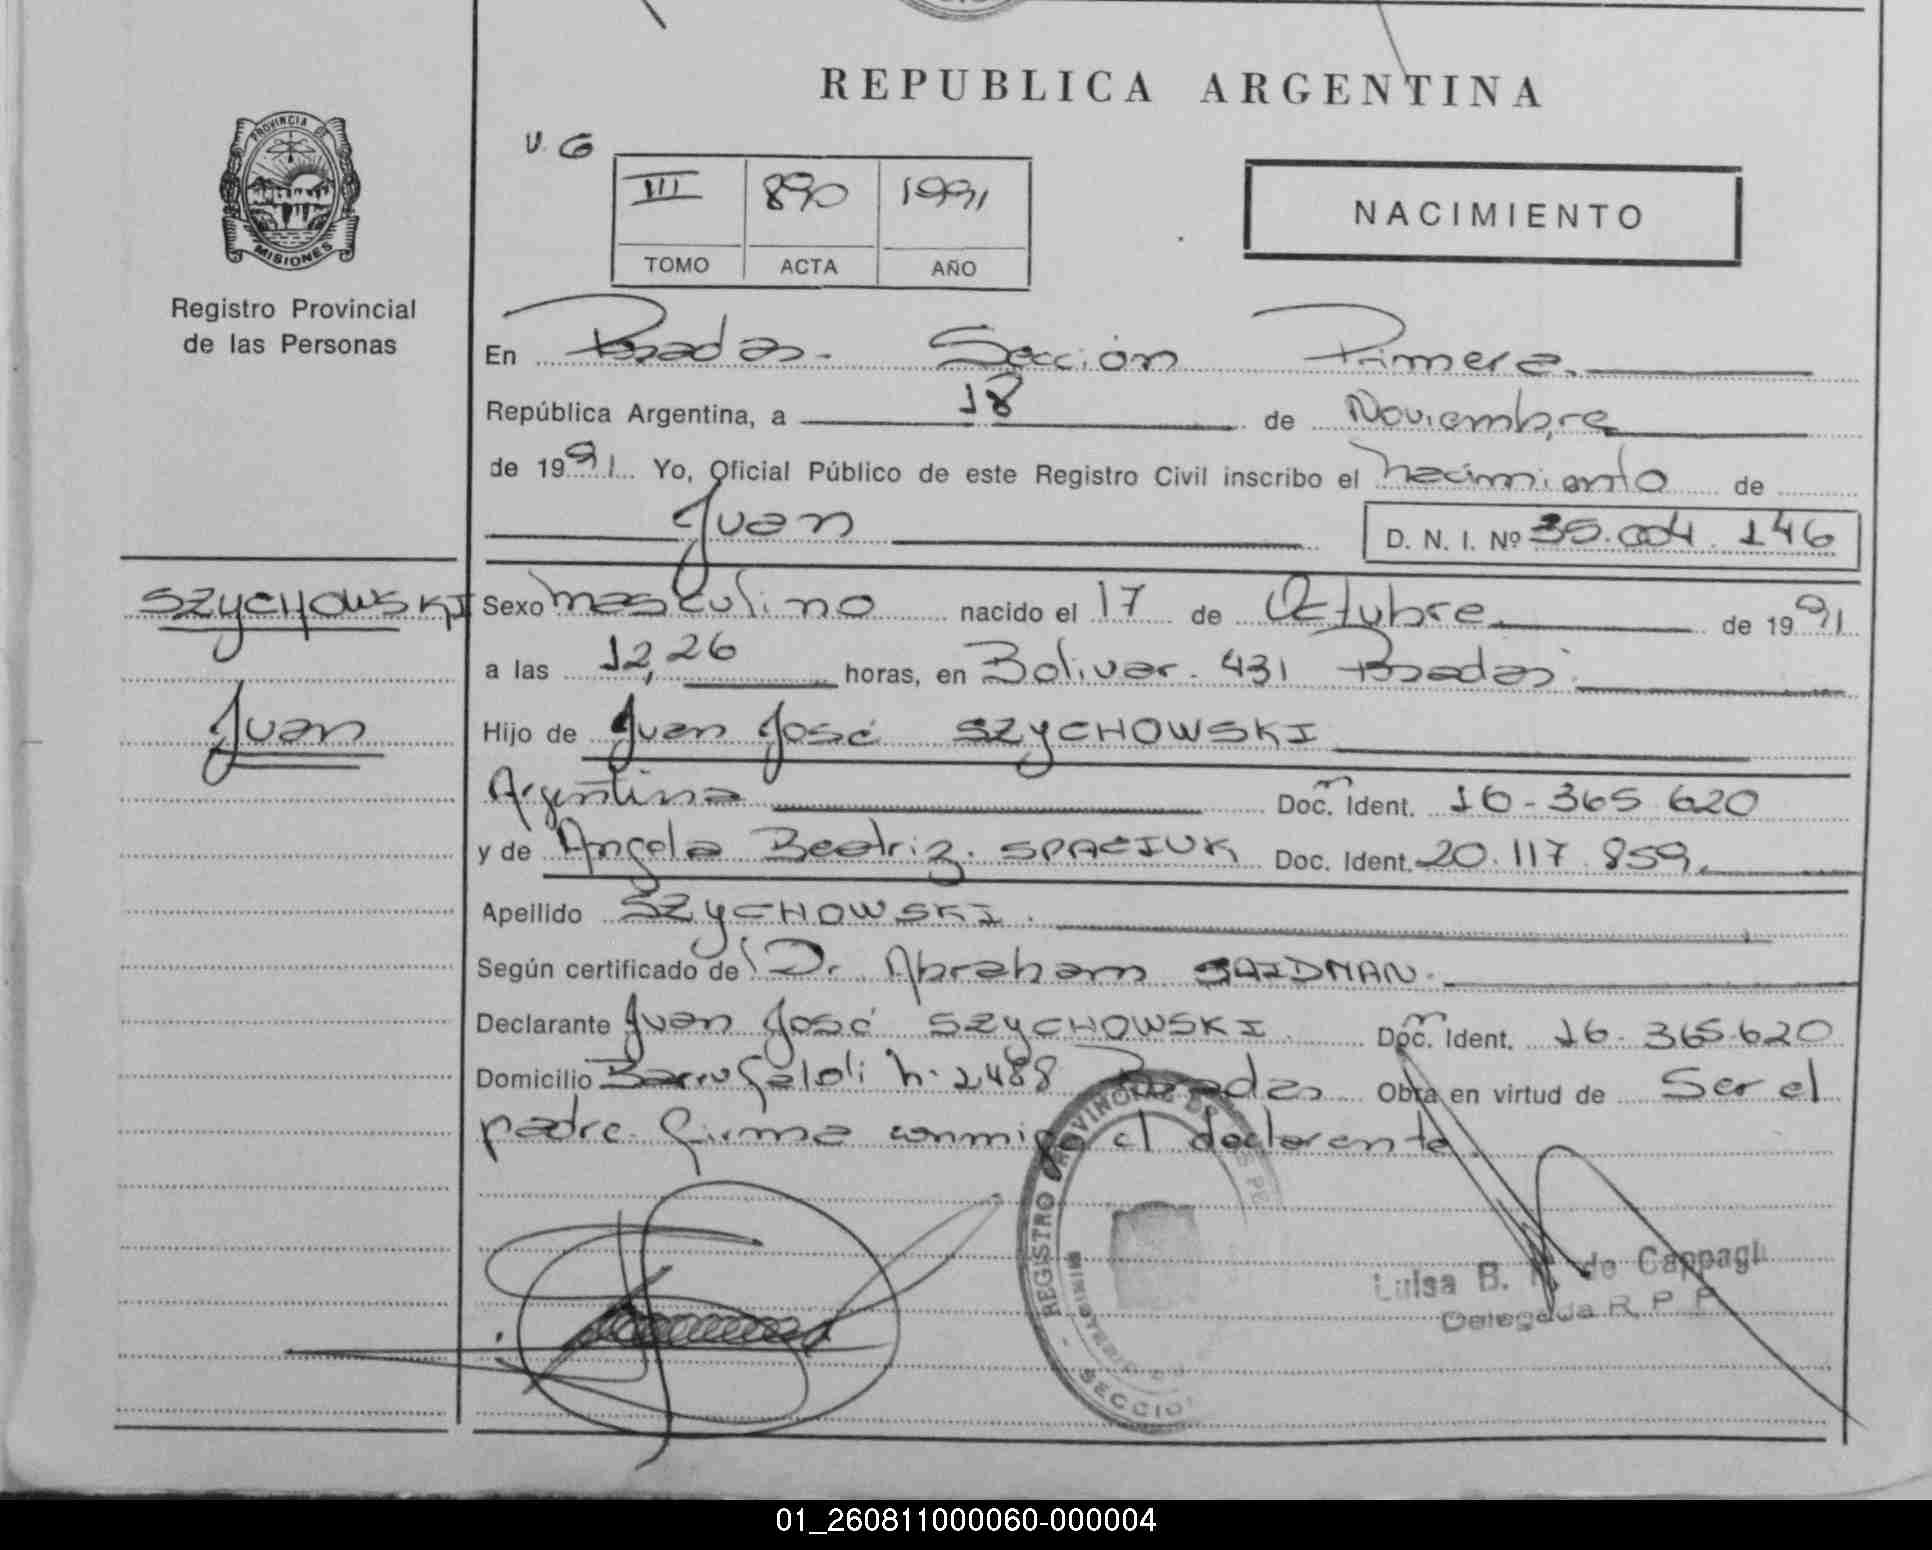 REPUBLICA ARGENTINA
PROVINCIA DE
MISIONES
Registro Provincial
de las Personas
V. G
III 890 1991
TOMO ACTA AÑO
NACIMIENTO
En Posadas. Sección Primera.
República Argentina, a 18 de Noviembre
de 1991 Yo, Oficial Público de este Registro Civil inscribo el nacimiento de
Juan
D. N. I. Nº 35.004.146
SZYCHOWSKI
Juan
Sexo masculino nacido el 17 de Octubre de 1991
a las 12,26 horas, en Bolivar. 431 Posadas.
Hijo de Juan José SZYCHOWSKI
Argentina Doc. Ident. 16.365.620
y de Angela Beatriz. SPACIUK Doc. Ident. 20.117.859.
Apellido SZYCHOWSKI.
Según certificado de Dr. Abraham SAIDMAN.
Declarante Juan José SZYCHOWSKI. Doc. Ident. 16.365.620
Domicilio Barrio h. 2488 Posadas Obra en virtud de Ser el
padre firma conmigo el declarante.
REGISTRO PROVINCIAL DE LAS PE
SECCIO
Luisa B. de Cappagli
Delegada R. P. P.
01_260811000060-000004